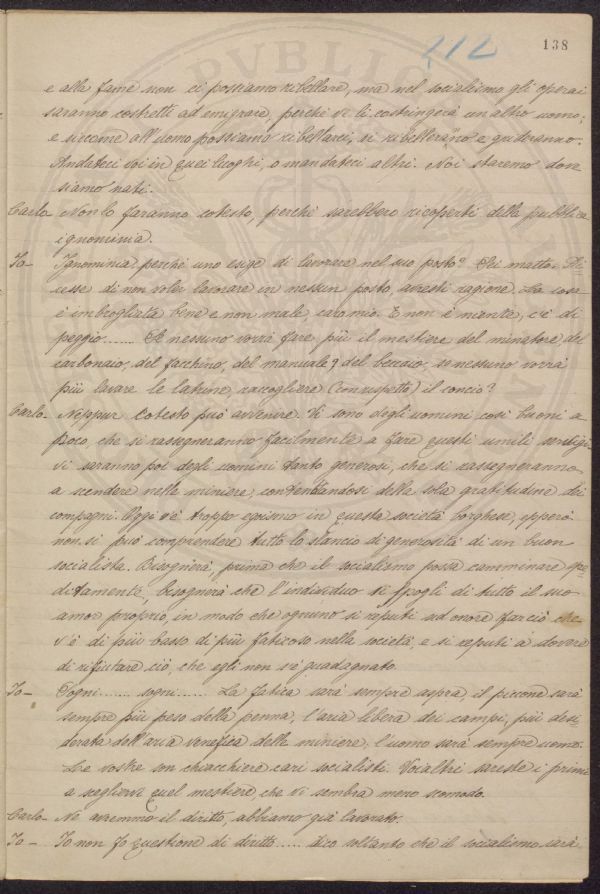 212
138
e alla fame non ci possiamo ribellare, ma nel socialismo gli operai
saranno costretti ad emigrare, perchè ve li costringerà un altro uomo;
e siccome all'uomo possiamo ribellarci, si ribelleranno e grideranno:
Andateci voi in quei luoghi, o mandateci altri. Noi staremo dove
siamo nati.
Carlo - Non lo faranno cotesto, perchè sarebbero ricoperti della pubblica
ignominia.
Io - Ignominia, perchè uno esige di lavorare nel suo posto? Sei matto. Di-
cesse di non voler lavorare in nessun posto, avresti ragione. La cosa
è imbrogliata bene e non male, caro mio. E non è manta, c'è di
peggio...... Se nessuno vorrà fare più il mestiere del minatore, del
carbonaio, del facchino, del manuale, del beccaio; se nessuno vorrà
più lavare le latrine, raccogliere (con rispetto) il concio?
Carlo - Neppur cotesto può avvenire. Vi sono degli uomini così buoni a
poco, che si rassegneranno facilmente a fare questi umili servigi;
vi saranno poi degli uomini tanto generosi, che si rassegneranno
a scendere nelle miniere, contentandosi della sola gratitudine dei
compagni. Oggi v'è troppo egoismo in questa società borghese, epperò
non si può comprendere tutto lo slancio di generosità di un buon
socialista. Bisognerà, prima che il socialismo possa camminare spe-
ditamente, bisognerà che l'individuo si spogli di tutto il suo
amor proprio, in modo che ognuno si reputi ad onore far ciò che
v'è di più basso di più faticoso nella società, e si reputi a dovere
di rifiutare ciò, che egli non s'è guadagnato.
Io - Sogni...... sogni...... La fatica sarà sempre aspra, il piccone sarà
sempre più peso della penna, l'aria libera dei campi, più desi-
derata dell'aria venefica delle miniere; l'uomo sarà sempre uomo.
Le vostre son chiacchiere cari socialisti. Voialtri sareste i primi
a scegliervi quel mestiere che vi sembra meno scomodo.
Carlo - Ne avremmo il diritto, abbiamo già lavorato.
Io - Io non fo questione di diritto..... dico soltanto che il socialismo sarà